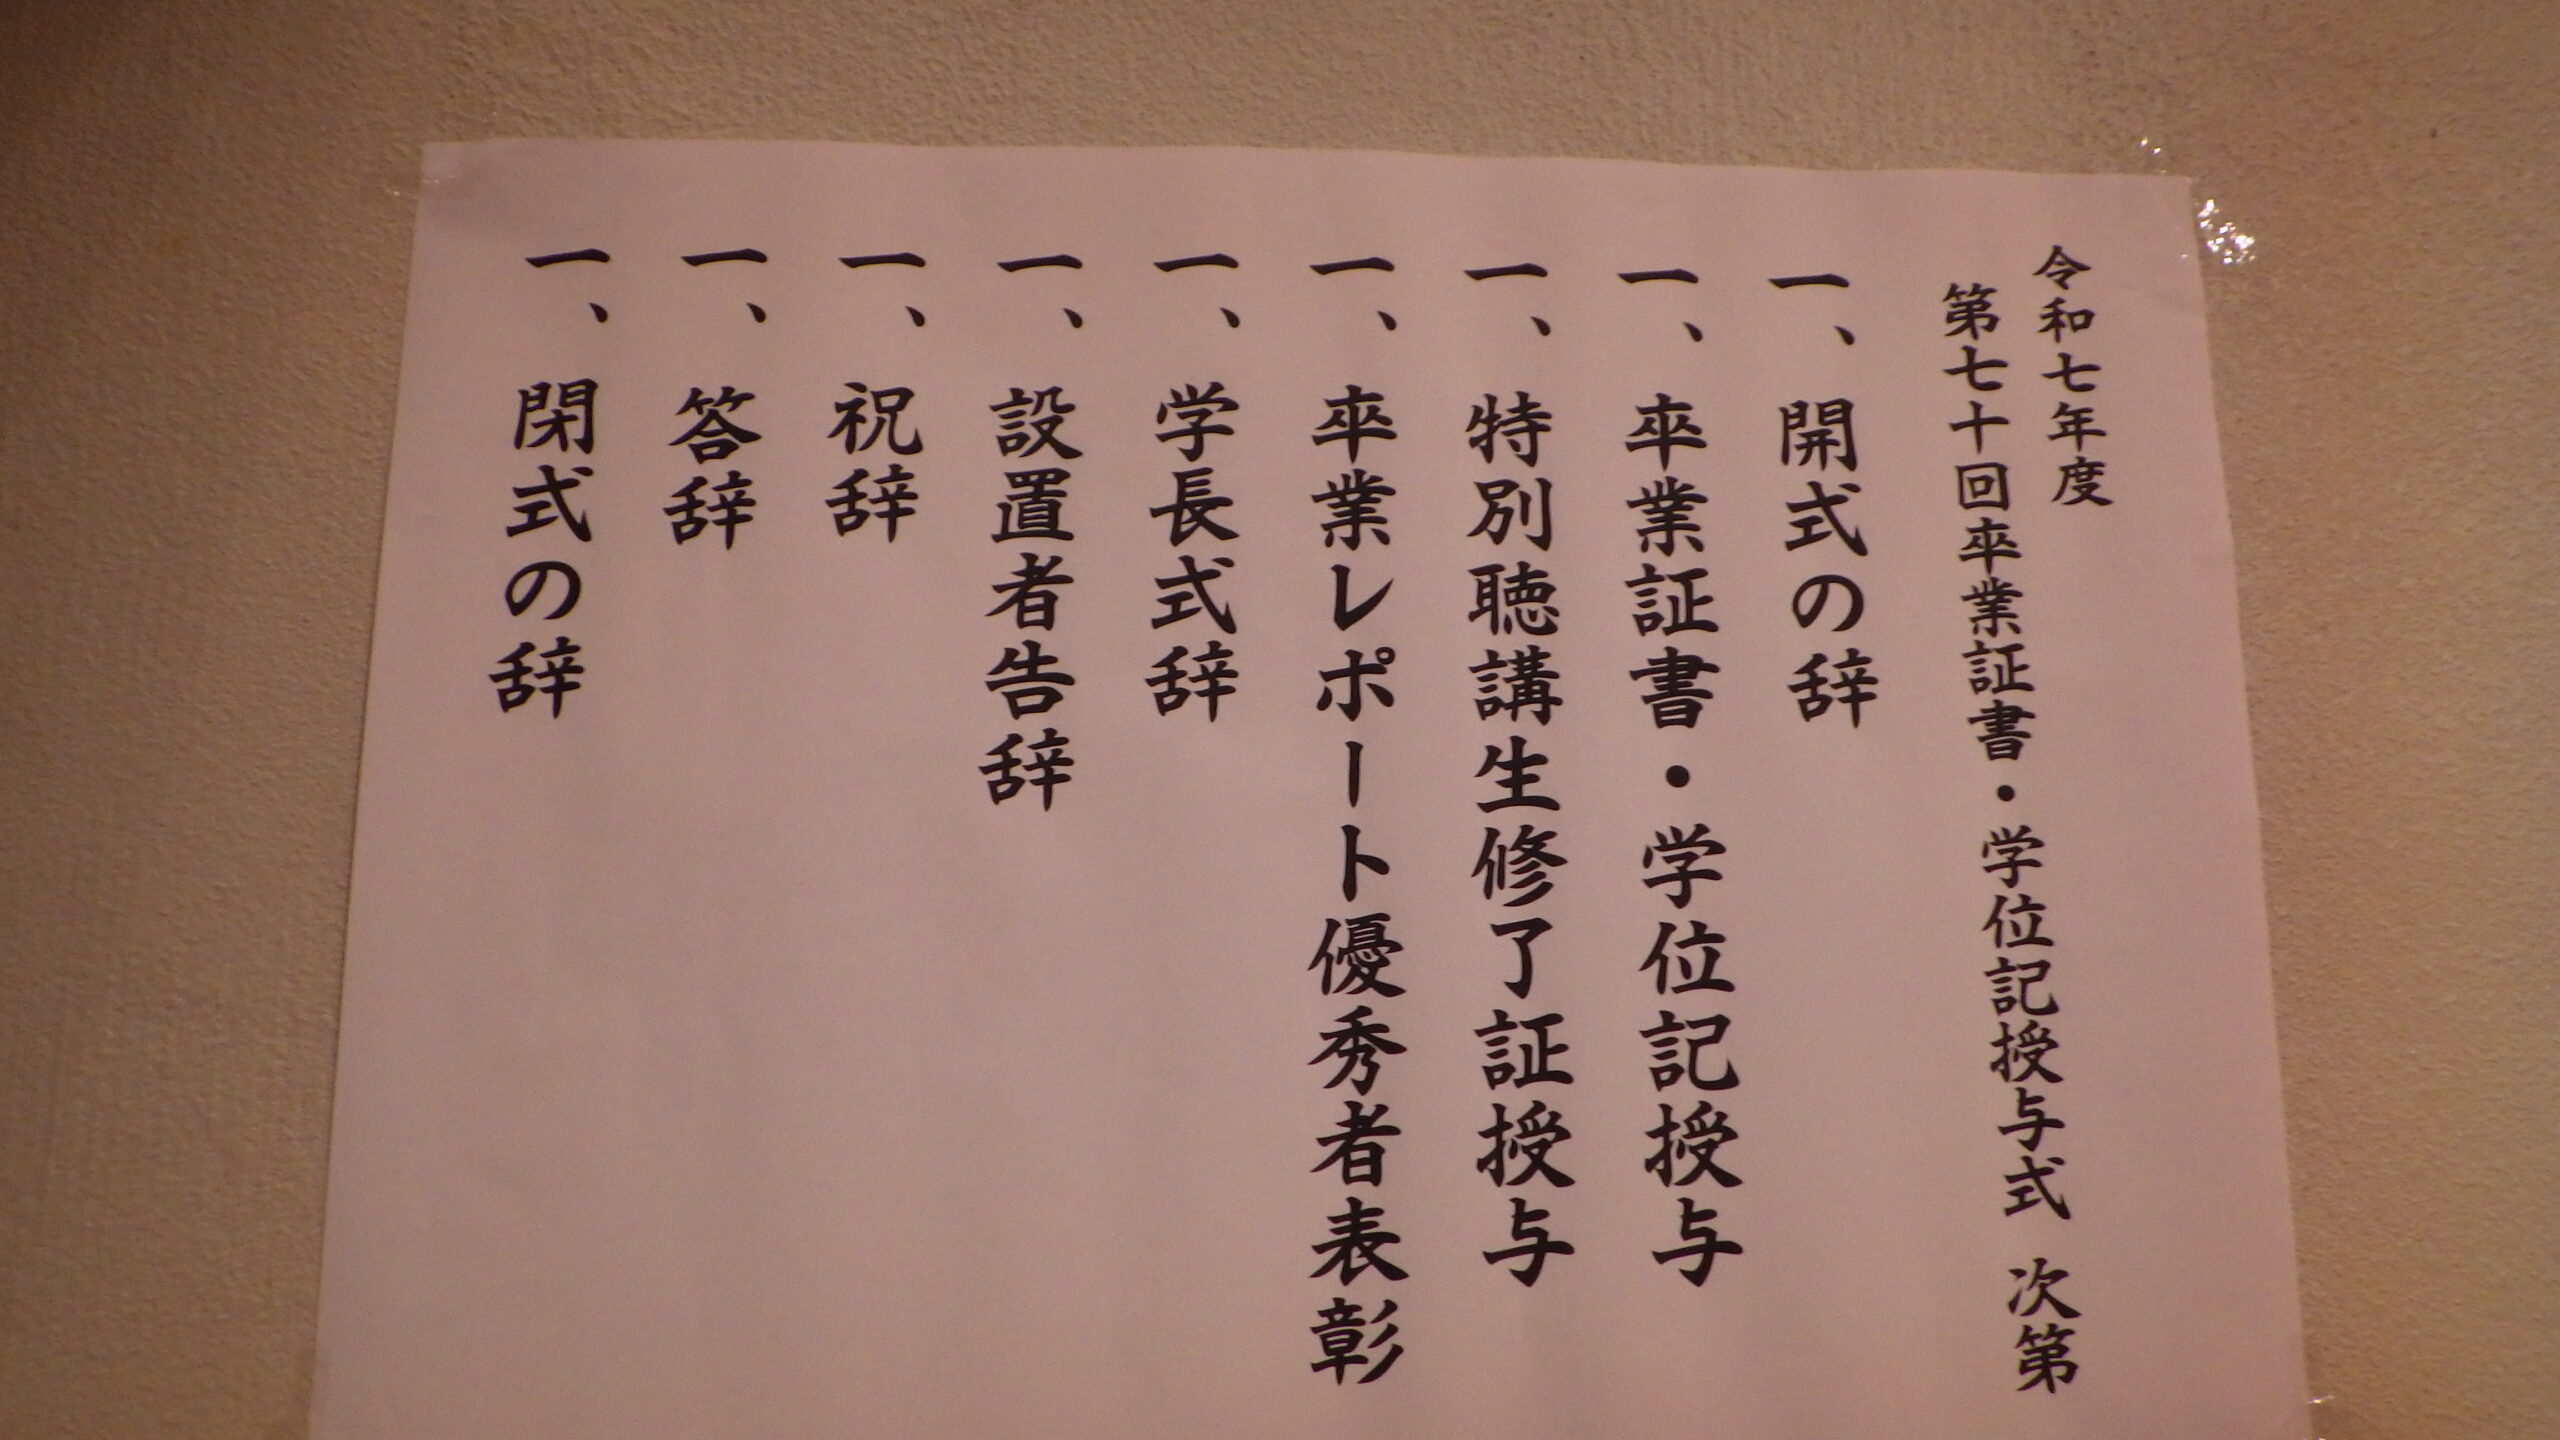 令和七年度
第七十回卒業証書・学位記授与式 次第
一、開式の辞
一、卒業証書・学位記授与
一、特別聴講生修了証授与
一、卒業レポート優秀者表彰
一、学長式辞
一、設置者告辞
一、祝辞
一、答辞
一、閉式の辞